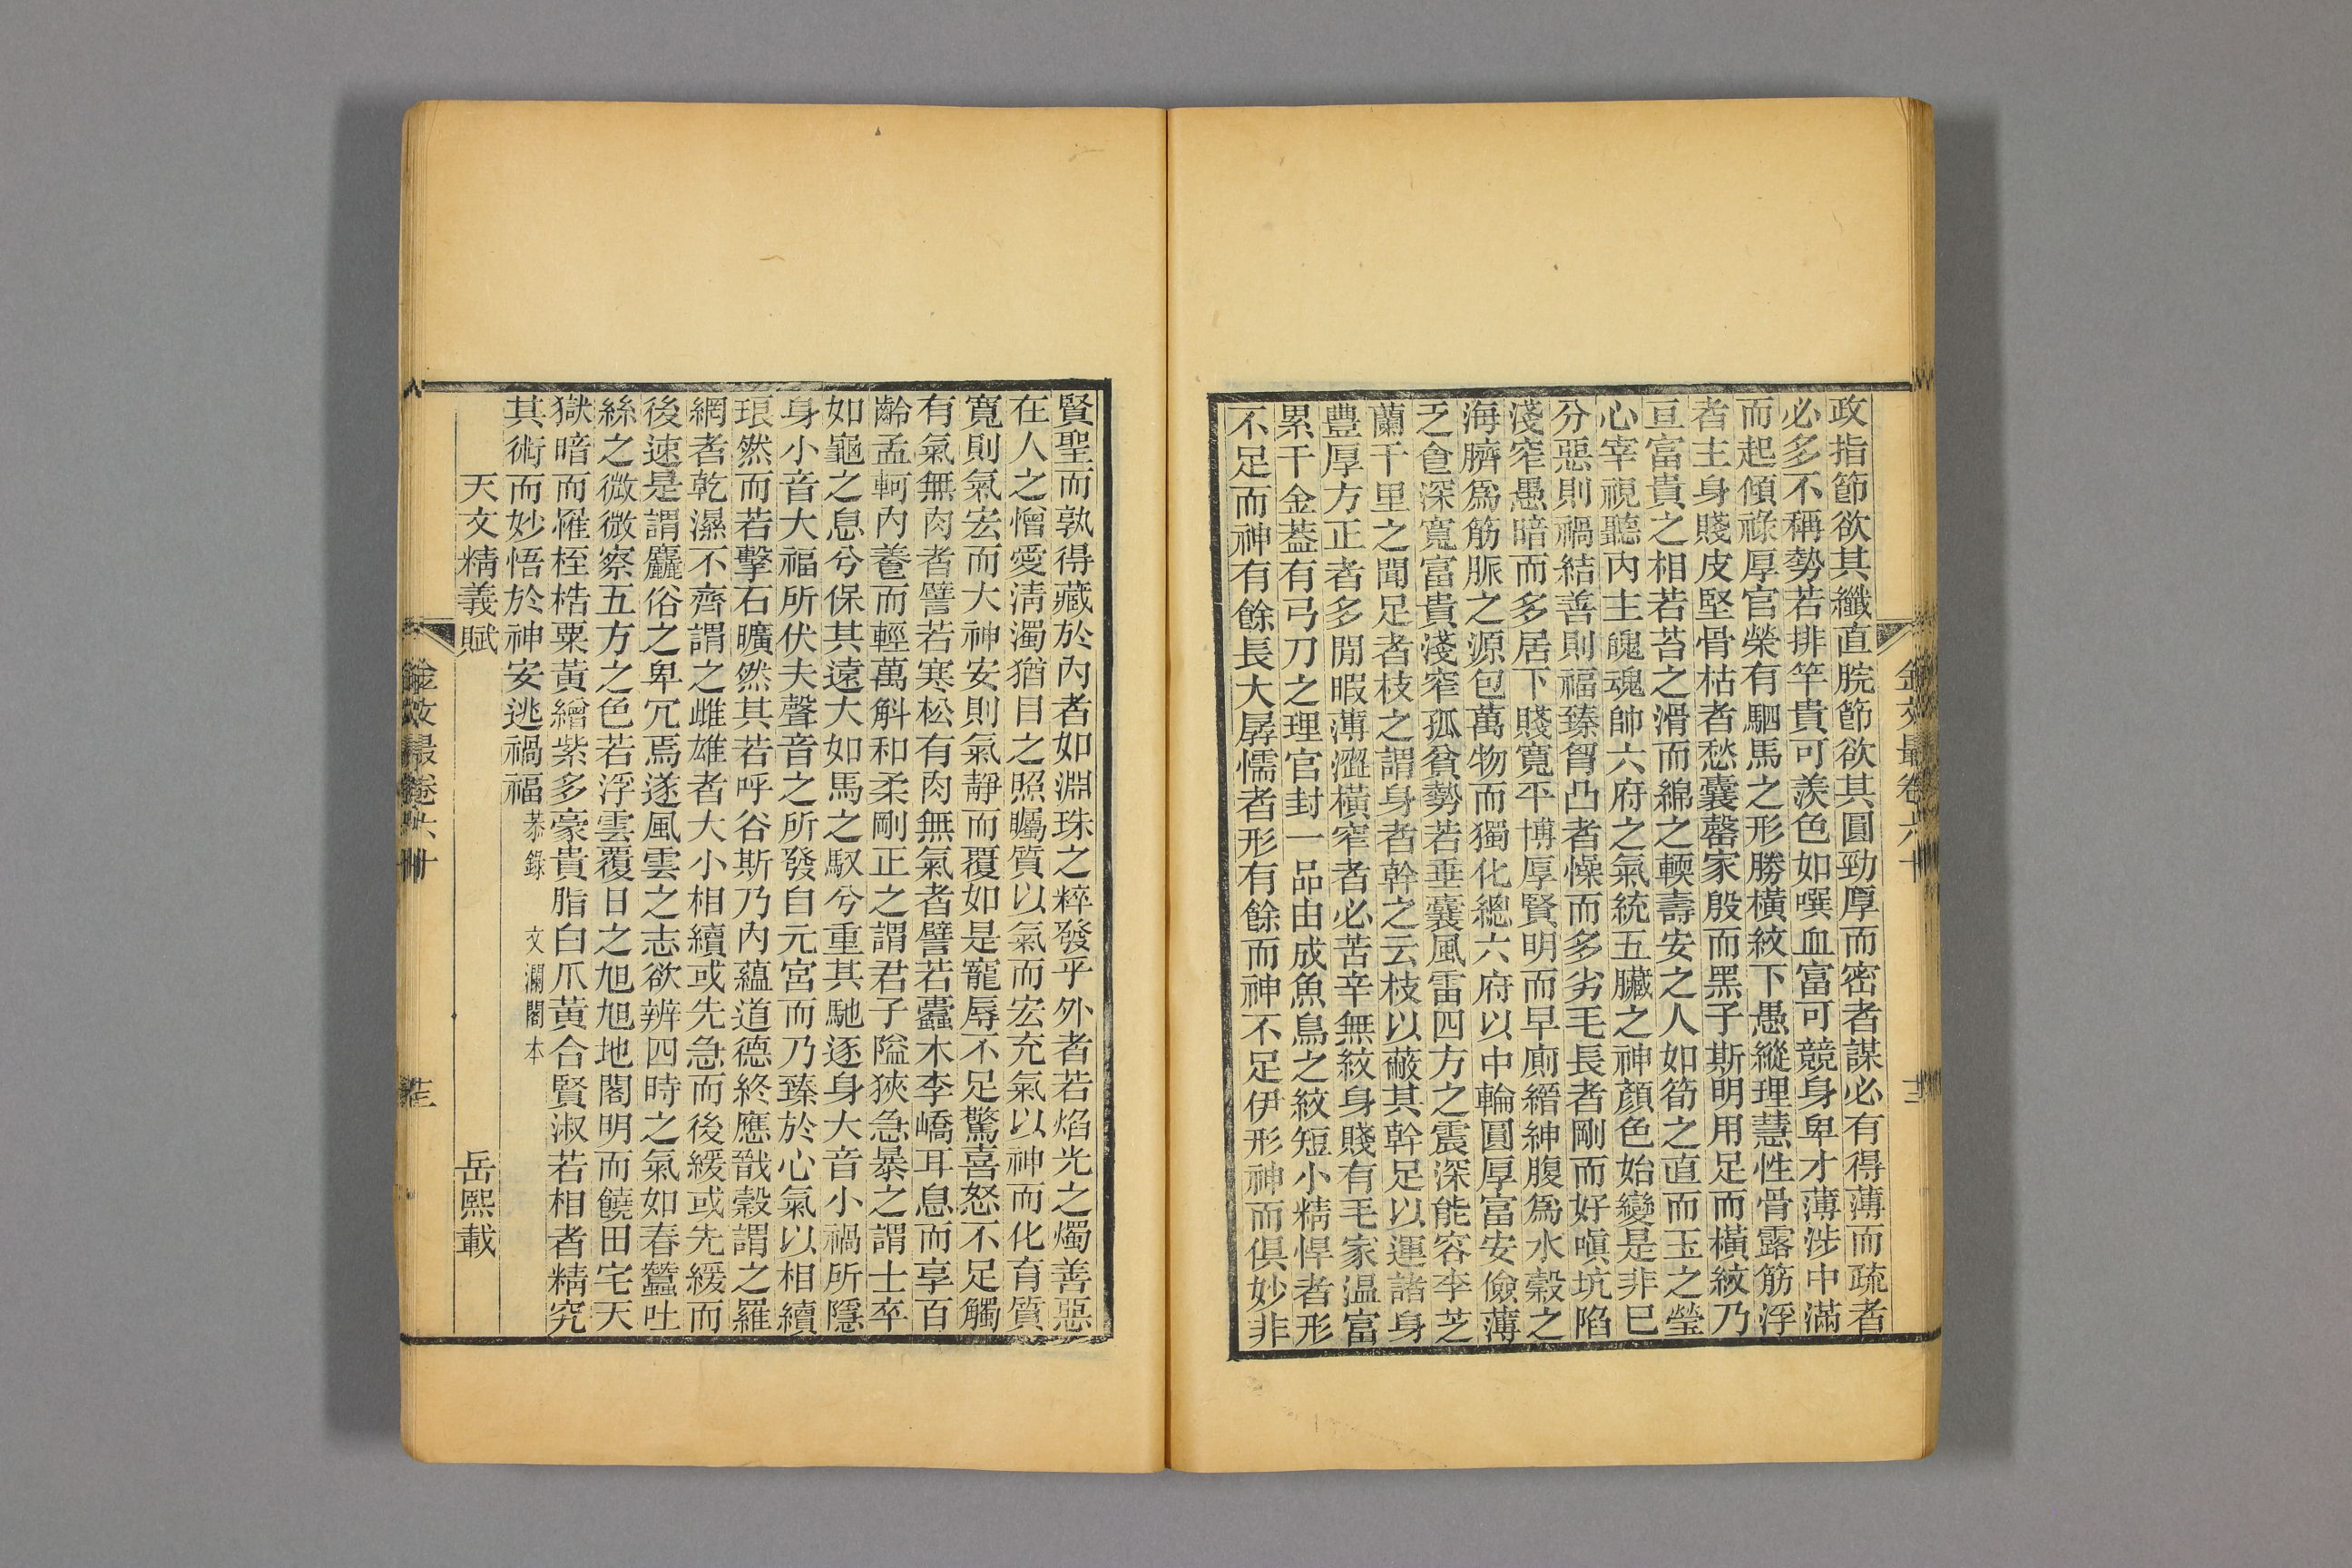 政指節欲其纖直腕節欲其圓勁厚而密者謀必有得薄而疏者
必多不稱勢若排竿貴可羨色如噀血富可競身卑才薄涉中滿
而起傾祿厚官榮有駟馬之形勝橫紋下愚縱理慧性骨露筋浮
者主身賤皮堅骨枯者愁囊罄家殷而黑子斯明用足而橫紋乃
亘富貴之相若苔之滑而綿之輭壽安之人如筍之直而玉之瑩
心宰視聽內主魄魂帥六府之氣統五臟之神顏色始變是非已
分惡則禍結善則福臻胷凸者懆而多劣毛長者剛而好嗔坑陷
淺窄愚暗而多居下賤寬平博厚賢明而早廁縉紳腹爲水穀之
海臍爲筋脈之源包萬物而獨化總六府以中輪圓厚富安儉薄
乏食深寬富貴淺窄孤貧勢若垂囊風雷四方之震深能容李芝
蘭千里之聞足者枝之謂身者幹之云枝以蔽其幹足以運諸身
豐厚方正者多閒暇薄澀橫窄者必苦辛無紋身賤有毛家温富
累千金蓋有弓刀之理官封一品由成魚鳥之紋短小精悍者形
不足而神有餘長大孱懦者形有餘而神不足伊形神而俱妙非
金文最卷六十
賢聖而孰得藏於內者如淵珠之粹發乎外者若焰光之燭善惡
在人之憎愛淸濁猶目之照矚質以氣而宏充氣以神而化育質
寬則氣宏而大神安則氣靜而覆如是寵辱不足驚喜怒不足觸
有氣無肉者譬若寒松有肉無氣者譬若蠹木李嶠耳息而享百
齡孟軻內養而輕萬斛和柔剛正之謂君子隘狹急暴之謂士卒
如龜之息兮保其遠大如馬之馭兮重其馳逐身大音小禍所隱
身小音大福所伏夫聲音之所發自元宮而乃臻於心氣以相續
琅然而若擊石曠然其若呼谷斯乃內蘊道德終應戩穀謂之羅
網者乾濕不齊謂之雌雄者大小相續或先急而後緩或先緩而
後速是謂麤俗之卑冗焉遂風雲之志欲辨四時之氣如春蠶吐
絲之微微察五方之色若浮雲覆日之旭旭地閣明而饒田宅天
獄暗而罹桎梏粟黃繒紫多豪貴脂白爪黃合賢淑若相者精究
其術而妙悟於神安逃禍福恭錄 文瀾閣本
天文精義賦 岳熙載
金文最卷六十